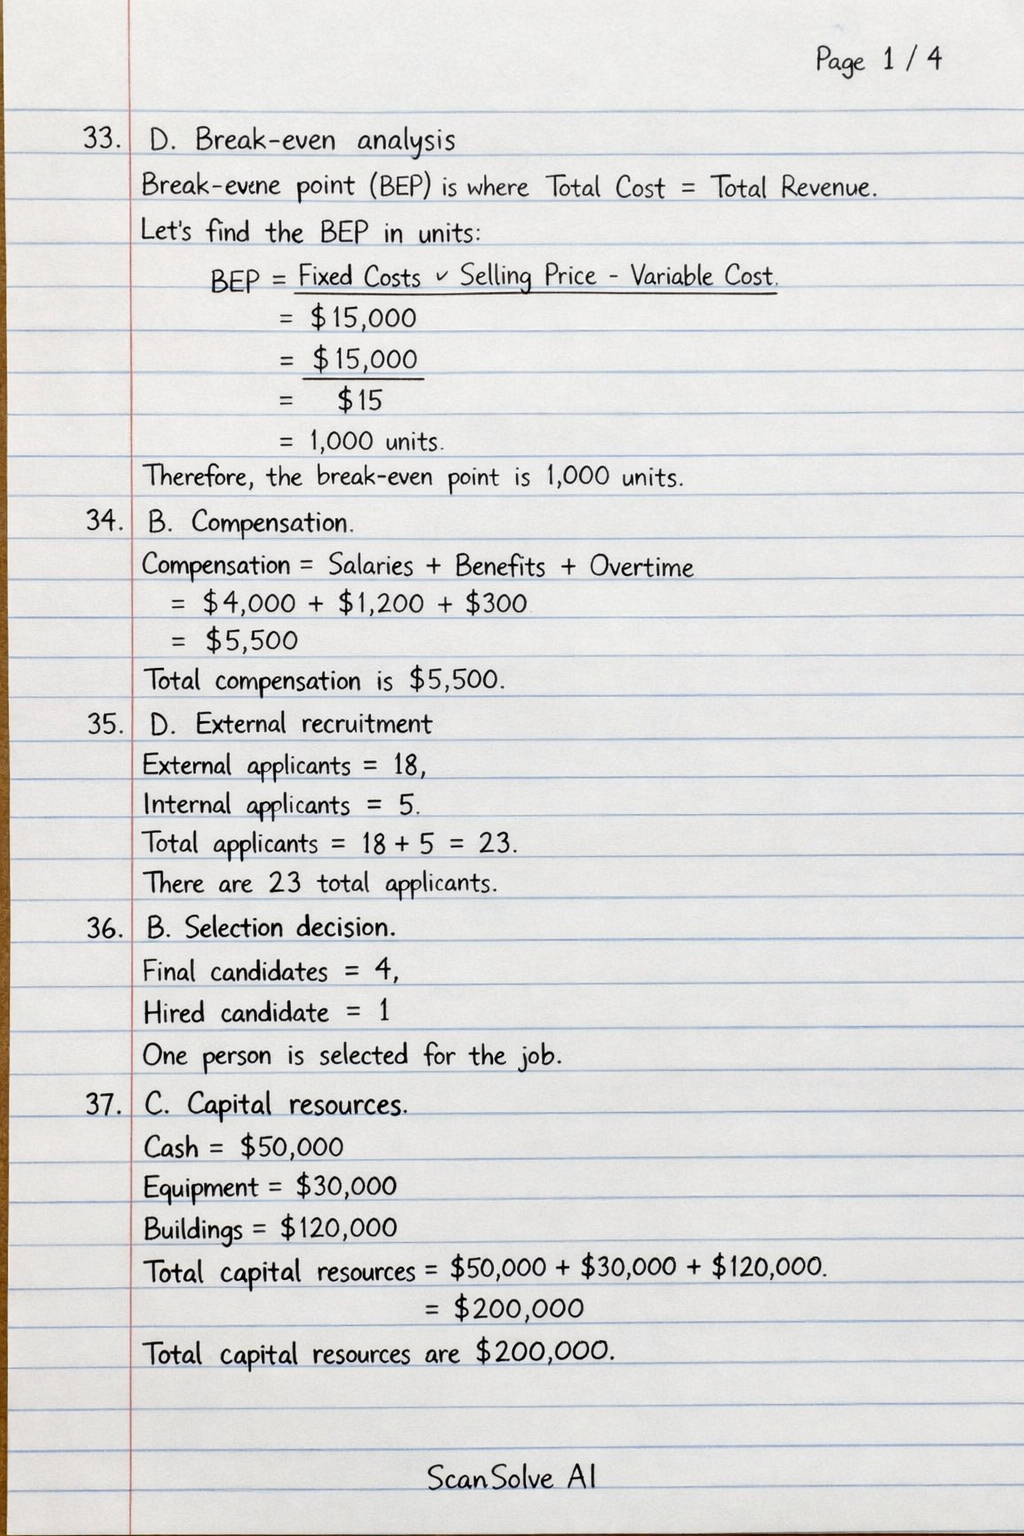 Page 1 / 4
33. D. Break-even analysis
Break-evne point (BEP) is where Total Cost = Total Revenue.
Let's find the BEP in units:
BEP = Fixed Costs ✓ Selling Price - Variable Cost.
= $15,000
= $15,000
= $15
= 1,000 units.
Therefore, the break-even point is 1,000 units.
34. B. Compensation.
Compensation = Salaries + Benefits + Overtime
= $4,000 + $1,200 + $300
= $5,500
Total compensation is $5,500.
35. D. External recruitment
External applicants = 18,
Internal applicants = 5.
Total applicants = 18 + 5 = 23.
There are 23 total applicants.
36. B. Selection decision.
Final candidates = 4,
Hired candidate = 1
One person is selected for the job.
37. C. Capital resources.
Cash = $50,000
Equipment = $30,000
Buildings = $120,000
Total capital resources = $50,000 + $30,000 + $120,000.
= $200,000
Total capital resources are $200,000.
ScanSolve AI